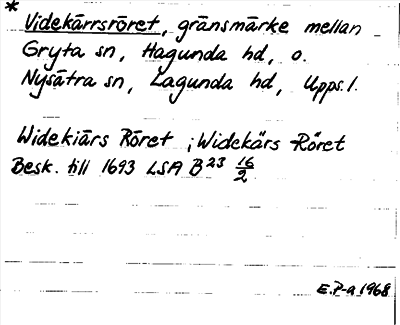 * Videkärrsröret, gränsmärke mellan
Gryta sn, Hagunda hd, o.
Nysätra sn, Lagunda hd, Upps. l.
Widekiärs Röret ; Widekärs Röret
Besk. till 1693 LSA B 23 16/2
E.P-a 1968